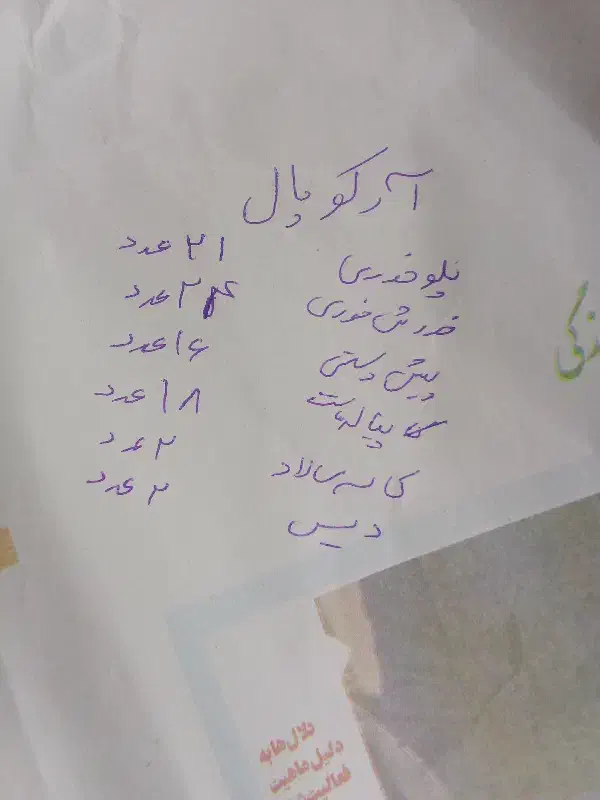 آرکو پال
پلو خوری ۲۱ عدد
خورش خوری ۲۴ عدد
پیش دستی ۱۶ عدد
پیاله ماست ۱۸ عدد
کاسه سالاد ۲ عدد
دیس ۲ عدد
دلال‌ها به
دلیل ماهیت